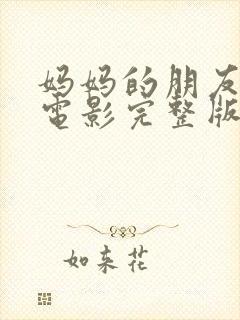 妈妈的朋友
電影完整版
如来花